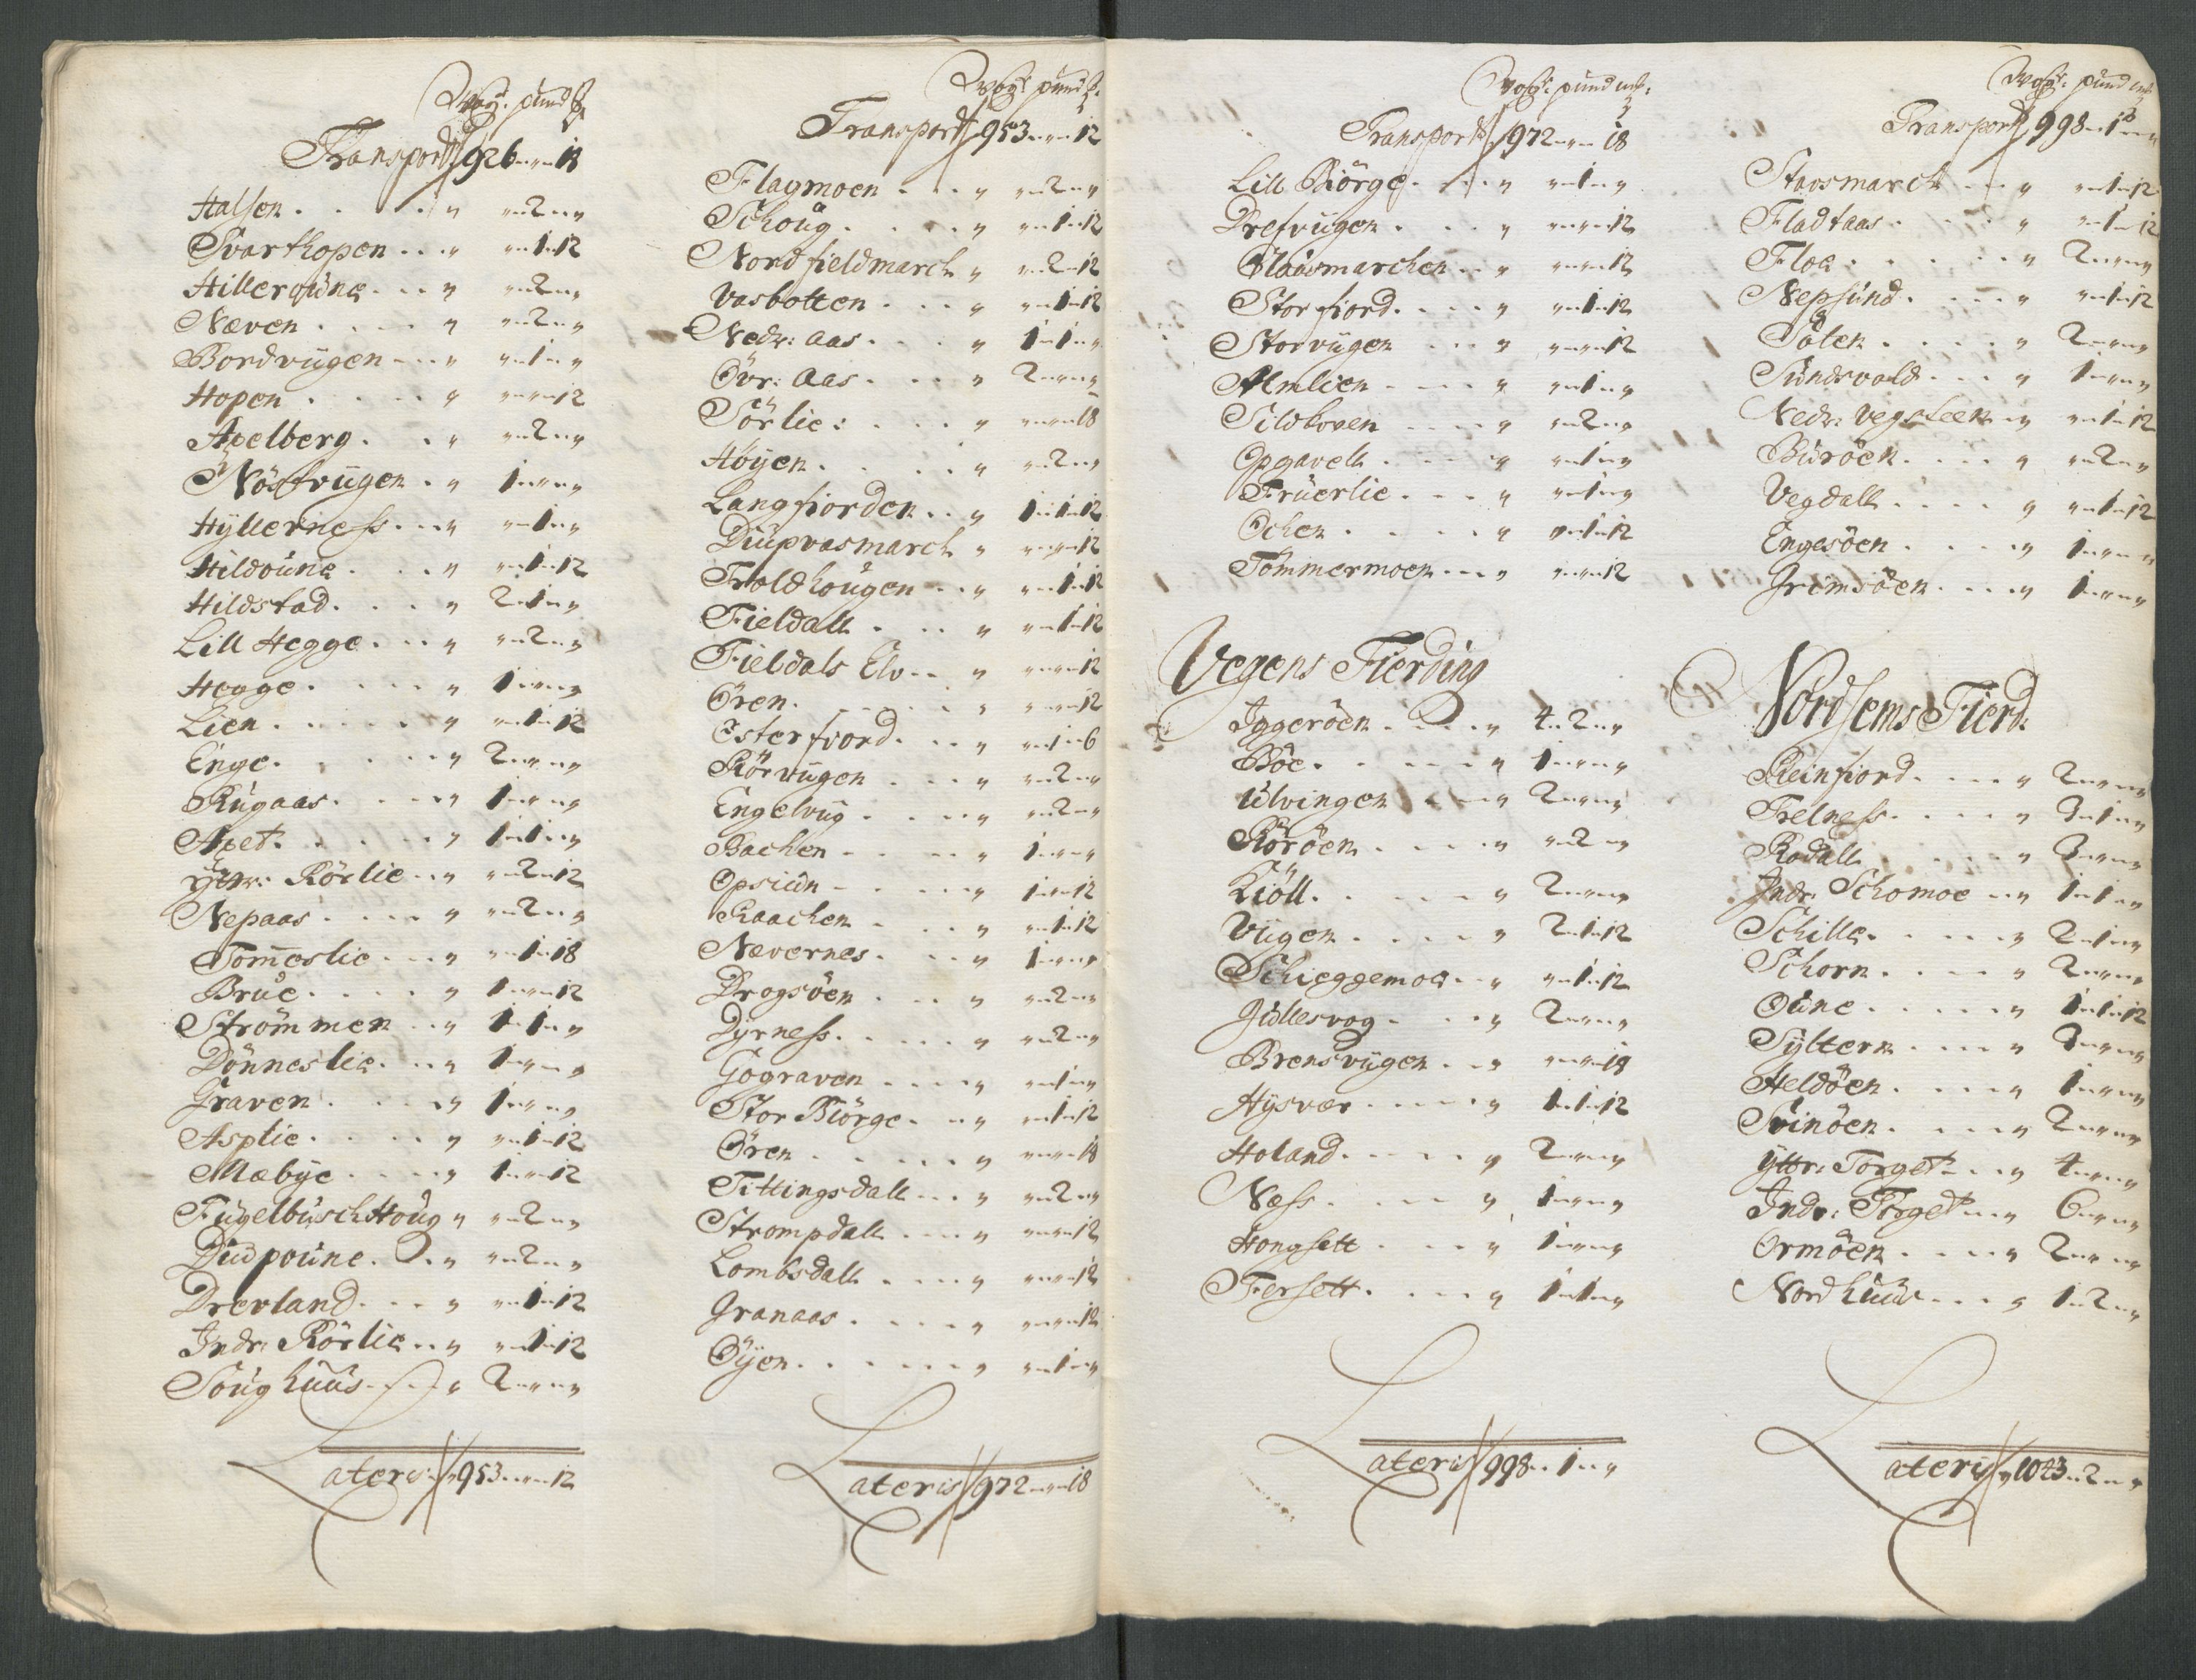 Wog: pund
Transport 926 „ „ 18
Halsen . . . „ „ 2 „
Svarthopen . . . „ „ 1 12
Hilleroune . . . „ „ 2 „
Næven . . . „ „ 2 „
Bordviigen . . . „ „ 1 „
Hopen . . . „ „ „ 12
Apelberg . . . „ „ 2 „
Nöstviigen . „ 1 „ „
Hyllerness . . . „ „ 1 „
Hildoune . . . „ „ 1 12
Hildstad . . . „ 2 1 „
Lill Hegge . . . „ „ 2 „
Hegge . . . „ 1 „ „
Lien . . . „ „ 1 12
Enge . . . „ 2 „ „
Rugaas . . . „ 1 „ „
Apet . . . „ 1 1 „
Yttr: Rörlie . . „ „ 2 12
Nepaas . . . „ „ 2 „
Tom̄eslie . . . „ „ 1 18
Brue . . . „ 1 „ 12
Strömmen . . „ 1 1 „
Dönneslie . . . „ 1 „ „
Graven . . . „ 1 „ „
Asplie . . . „ „ 1 12
Mæbye . . . „ 1 „ 12
Fugelbusch Houg „ „ 2 „
Diupoune . . „ „ 2 „
Drevland . . . „ „ 1 12
Indr: Rörlie . . „ „ 1 12
Soughuus . . . „ 2 „ „
Lateris „ 953 „ „ 12
Wog: pund
Transport 953 „ „ 12
Flagmoen . . . „ „ 2 „
Schoug . . . „ „ 1 12
Nordfieldmarch „ „ 2 12
Vasbotten . . . „ „ 1 12
Nedr: Aas . . . „ 1 1 „
Övr: Aas . . . „ 2 „ „
Sörlie: . . . „ „ „ 18
Höyen . . . „ „ 2 „
Langfiorden . . „ 1 1 12
Diupvasmarch „ „ „ 12
Troldhougen . . „ „ 1 12
Fieldall . . . „ „ 1 12
Fieldals Elv . . „ „ „ 12
Ören . . . „ „ „ 12
Esterfiord . . . „ „ 1 6
Rörviigen . . . „ „ 2 „
Engelviig . . . „ „ 2 „
Bachen . . . „ 1 „ „
Opsiün . . . „ 1 „ 12
Raachen . . . „ „ 1 12
Nævernes . . . „ 1 „ „
Drogsöen . . . „ „ 2 „
Dyrness . . . „ „ 2 „
Gograven . . . „ „ 1 „
Stor Biörge . . . „ „ 1 12
Ören . . . „ „ „ 18
Tittingsdall . . . „ „ 2 „
Strompdall . . . „ „ „ 12
Lombsdall . . . „ „ „ 12
Granaas . . . „ „ „ 12
Öyen . . . „ „ 1 „
Lateris 972 „ „ 18
Wog: pund mk:
Transport 972 „ „ 18
Lill Biörge . . . „ „ 1 „
Drefviigen . . . „ „ „ 12
Claüsmarchen . . „ „ „ 12
Storfiord . . . „ „ 1 12
Storviigen . . . „ „ „ 12
Almlien . . . „ „ 1 „
Sildhoven . . . „ „ 2 „
Opgavell . . . „ „ 1 „
Früerlie . . . „ „ 1 „
Ochen . . . „ „ 1 12
Tömmermoen . . . „ „ „ 12
Vegens Fierding
Iggeröen . . . „ 4 2 „
Böe . . . „ 1 „ „
Ulvingen . . . „ 2 „ „
Röröen . . . „ „ 2 „
Kiöll . . . „ 2 „ „
Viigen . . . „ 2 1 12
Schieggemoe . . „ „ 1 12
Gullesvog . . . „ 2 „ „
Brensviigen . . . „ „ „ 18
Hysvær . . . „ 1 1 12
Holand . . . „ 2 „ „
Næss . . . „ 1 „ „
Hongsett . . . „ 1 „ „
Fersett . . . „ 1 1 „
Lateris 998 „ 1 „ „
Wog: pund mk:
Transport 998 „ 1 „
Stavsmarch . . . „ „ 1 12
Fladtaas . . . „ „ 1 12
Floe . . . „ 2 „ „
Nepsund . . . „ „ 1 12
Sölen . . . „ 2 „ „
Sundsvold . . . „ 1 „ „
Nedr: Vegsteen „ „ 1 12
Buröen . . . „ „ 2 „
Vegdall . . . „ „ 1 12
Engesöen . . . „ 1 „ „
Grimsöen . . . „ 1 „ „
Nordsems Fierd:
Reinfiord . . . „ 2 „ „
Trelness . . . „ 3 1 „
Rodall . . . „ 3 „ „
Indr: Schomoe . . „ 1 1 „
Schille . . . „ 2 1 „
Schorn . . . „ 2 „ „
Oune . . . „ 1 1 12
Syltern . . . „ 3 „ „
Heldöen . . . „ 1 „ „
Svinöen . . . „ 2 „ „
Yttr: Torget . . . „ 4 „ „
Indr: Torget . . . „ 6 „ „
Ormöen . . . „ 2 „ „
Nordhuus . . . „ 1 2 „
Lateris „ 1043 „ 2 „ „